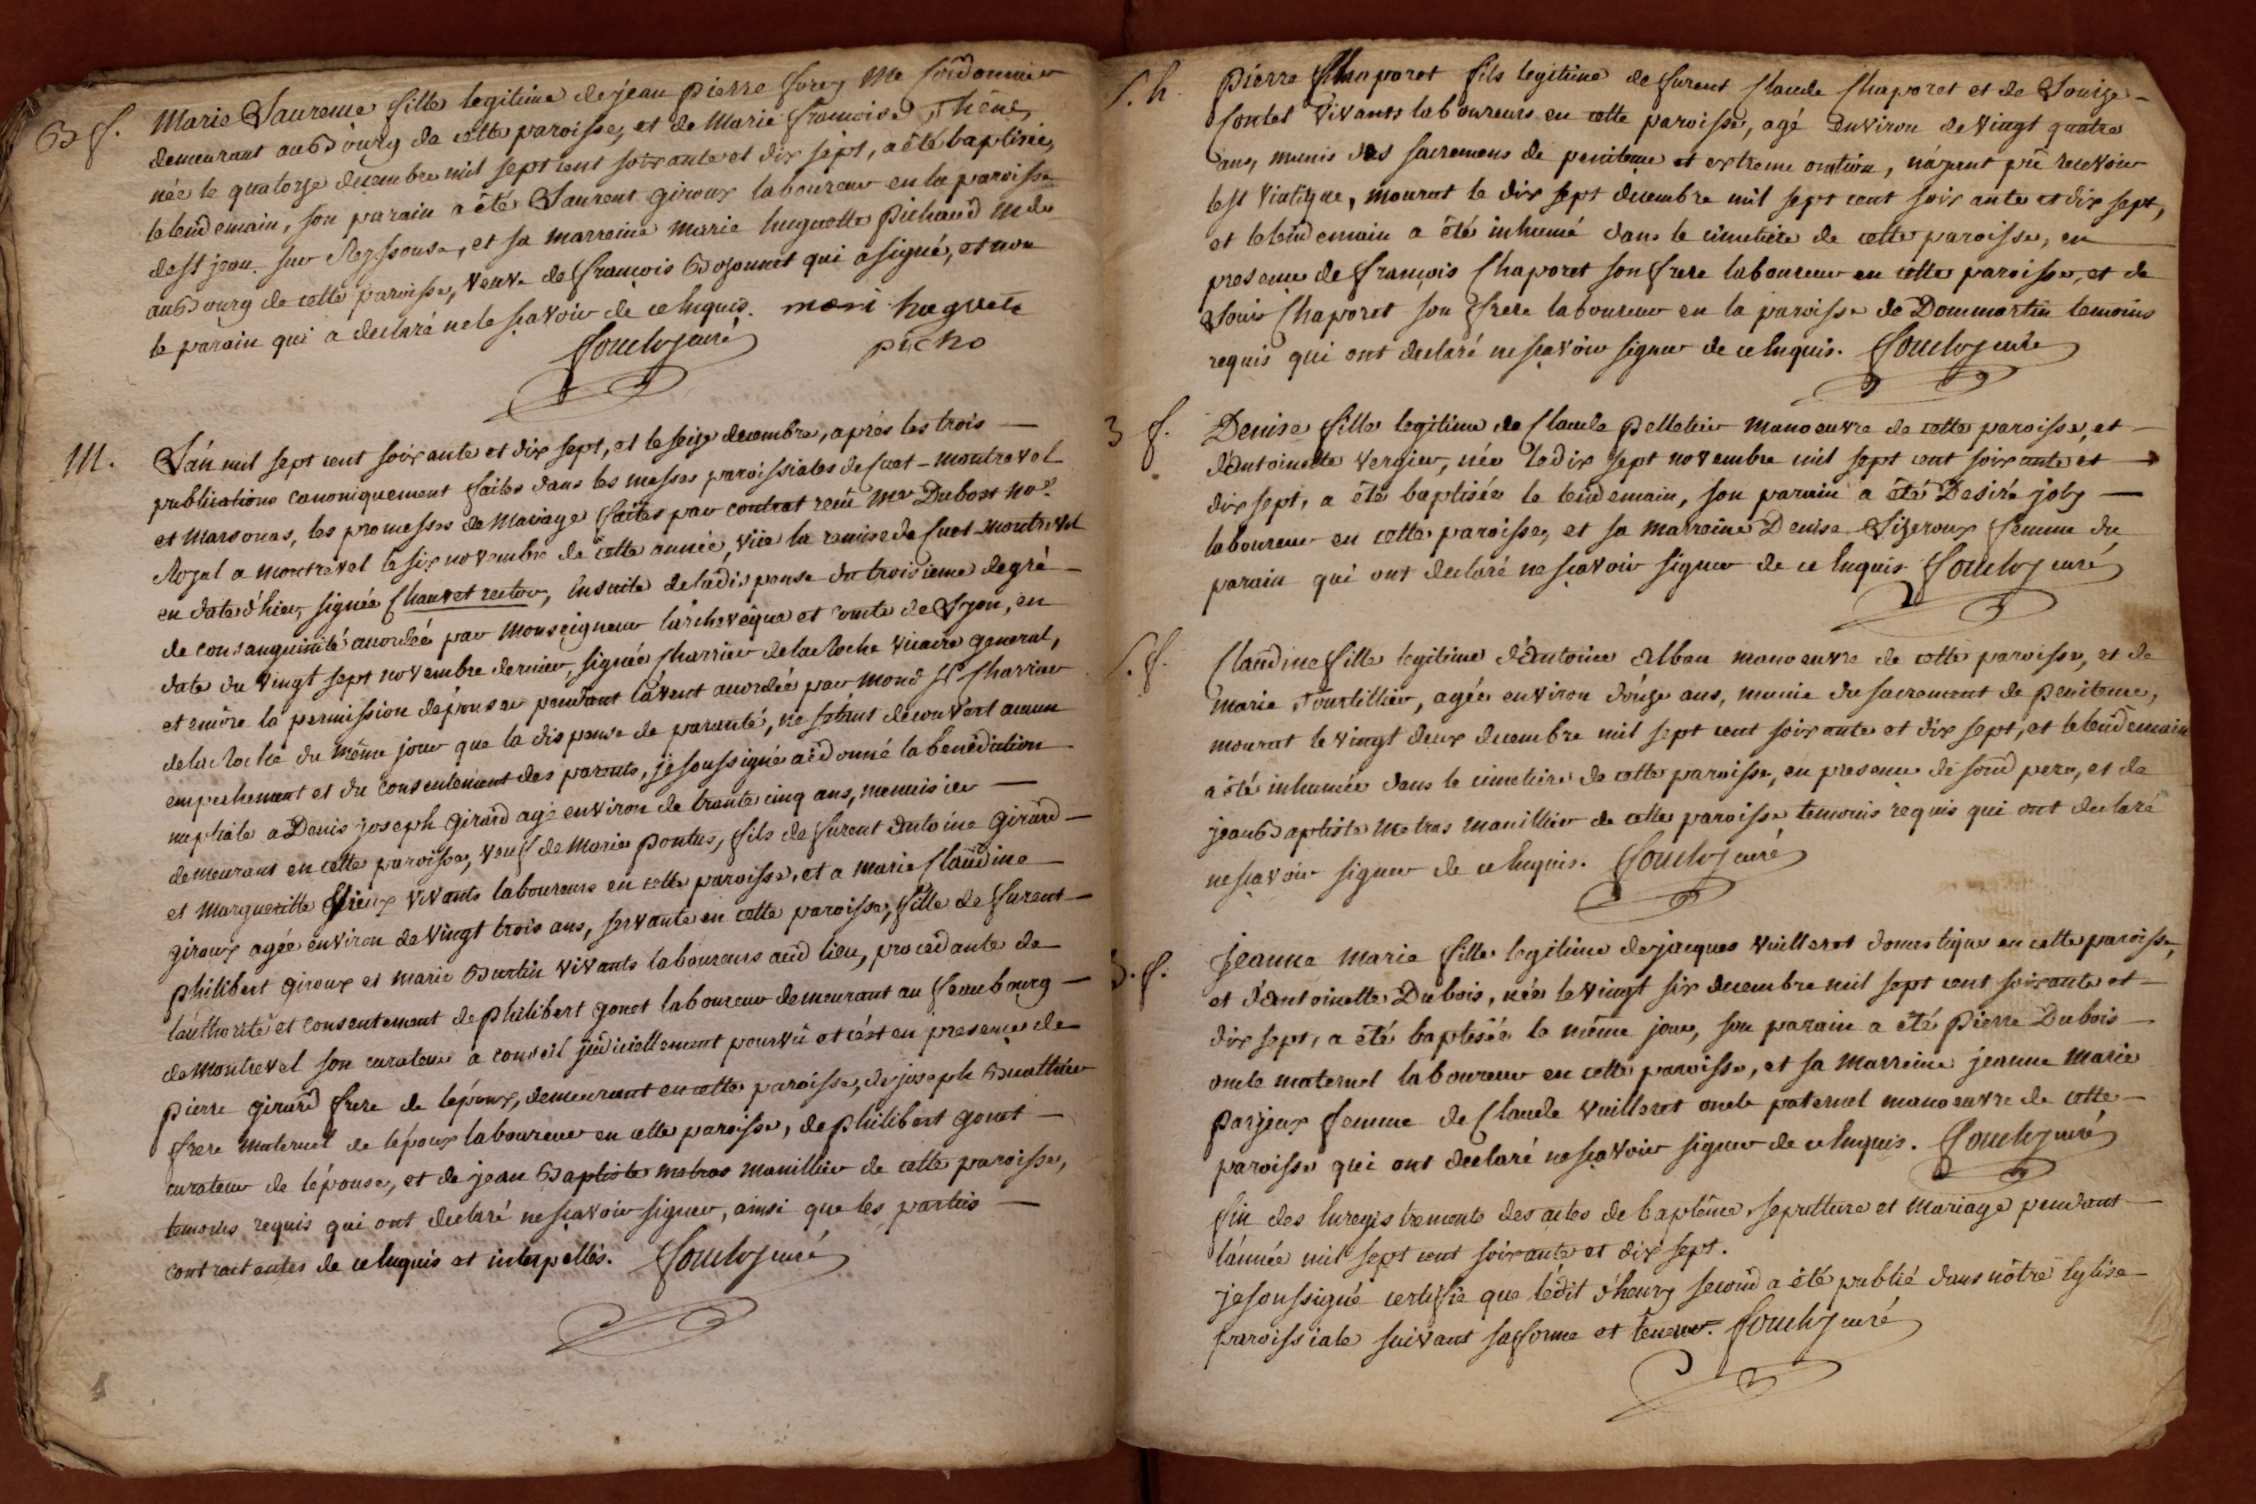 B f. Marie Laurence fille legitime de jean pierre forey Me Cordonnier
demeurant au Bourg de cette paroisse, et de Marie françoise Thêne,
née le quatorze decembre mil sept cent soixante et dix sept, a été baptisée
le lendemain, son parain a été Laurent giroux laboureur en la paroisse
de st jean sur Reyssouse, et sa marreine marie huguette Pichaud Mde
au Bourg de cette paroisse, veuve de françois Bozonnet qui a signé, et non
le parain qui a declaré ne le sçavoir de ce Enquis. mari huguete
picho
curé
M. L'an mil sept cent soixante et dix sept, et le seize decembre, après les trois
publications canoniquement faites dans les messes paroissiales de Cuet-montrevel
et Marsonas, les promesses de Mariage faites par contrat reçû Me Dubost no.re
Royal a montrevel le six novembre de cette année, vüe la remise de Cuet-montrevel
en date d'hier, signée Chauvet rector, Ensuite de la dispense du troisieme degré
de consanguinité accordée par Monseigneur l'archevêque et comte de Lyon, en
date du vingt sept novembre dernier, signée Charrier de la Roche vicaire general,
et encore la permission d'épouser pendant l'avent accordée par mond st Charrier
de la Roche du même jour que la dispense de parenté, ne s'etant decouvert aucun
empechement et du consentement des parents, je soussigné ai donné la benediction
nuptiale a Denis joseph girard agé environ de trente cinq ans, menuisier
demeurant en cette paroisse, veuf de Marie pontus, fils de furent antoine girard
et margueritte vivants laboureurs en cette paroisse, et a marie Claudine
giroux agée environ de vingt trois ans, servante en cette paroisse, fille de furent
philibert giroux et marie Burtin vivants laboureurs aud lieu, procedante de
l'authorité et consentement de philibert gonet laboureur demeurant au feaubourg
de Montrevel son curateur a conseil judiciellement pourvû et c'est en presence de
pierre girard frere de l'époux, demeurant en cette paroisse, de joseph Buathier
frere maternel de l'époux laboureur en cette paroisse, de philibert gonet
curateur de l'épouse, et de jean Baptiste metras manillier de cette paroisse,
temoins requis qui ont declaré ne sçavoir signer, ainsi que les parties
contractantes de ce Enquis et interpellés. curé
S. h. pierre Chaporet fils legitime de furent Claude Chaporet et de Louise
Contet vivants laboureurs en cette paroisse, agé environ de vingt quatre
ans, munis des sacremens de penitence et extreme onction, n'ayent pû recevoir
le st viatique, mourut le dix sept decembre mil sept cent soixante et dix sept,
et le lendemain a été inhumé dans le cimetiere de cette paroisse, en
presence de françois Chaporet son frere laboureur en cette paroisse, et de
Louis Chaporet son frere laboureur en la paroisse de Dommartin temoins
requis qui ont declaré ne sçavoir signer de ce Enquis. curé
B f. Denise fille legitime de Claude pelletier manoeuvre de cette paroisse, et
d'antoinette vergier, née le dix sept novembre mil sept cent soixante et
dix sept, a été baptisée le lendemain, son parain a été Desiré joly
laboureur en cette paroisse, et sa marreine Denise femme du
parain qui ont declaré ne sçavoir signer de ce Enquis curé
S. f. Claudine fille legitime d'antoine alban manoeuvre de cette paroisse, et de
marie Tourtillier, agée environ d'onze ans, munie du sacrement de penitence,
mourut le vingt deux decembre mil sept cent soixante et dix sept, et le lendemain
a été inhumée dans le cimetiere de cette paroisse, en presence de sond pere, et de
jean Baptiste Metras manillier de cette paroisse temoins requis qui ont declaré
ne sçavoir signer de ce Enquis. curé
B. f. jeanne marie fille legitime de jacques vuilleret domestique en cette paroisse,
et d'antoinette Dubois, née le vingt six decembre mil sept cent soixante et
dix sept, a été baptisée le même jour, son parain a été pierre Dubois
oncle maternel laboureur en cette paroisse, et sa marreine jeanne marie
parjoux femme de Claude vuilleret oncle paternel manoeuvre de cette
paroisse qui ont declaré ne sçavoir signer de ce Enquis. curé
fin des Enregistrements des actes de baptême, sepulture et mariage pendant
l'année mil sept cent soixante et dix sept.
je soussigné certifie que l'édit d'henry second a été publié dans nôtre Eglise
paroissiale suivant sa forme et teneur. curé